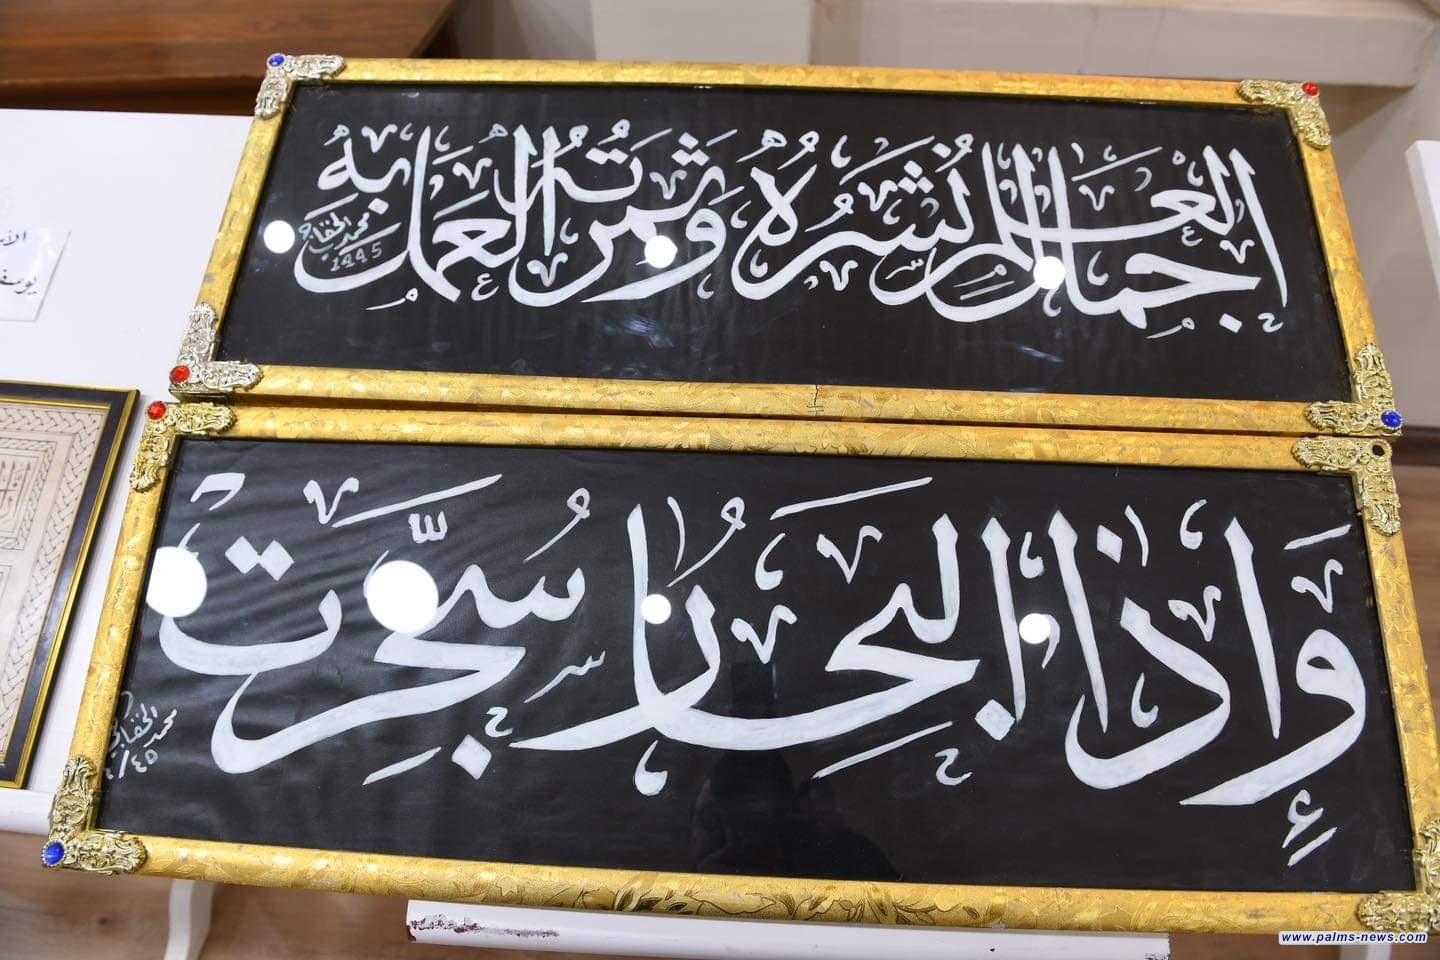 جَمَالُ الْعِلْمِ نَشْرُهُ وَثَمَرَتُهُ الْعَمَلُ بِهِ
محمد الخفاجي
1445
وَإِذَا الْبِحَارُ سُجِّرَتْ
محمد الخفاجي
يوسف
www.palms-news.com